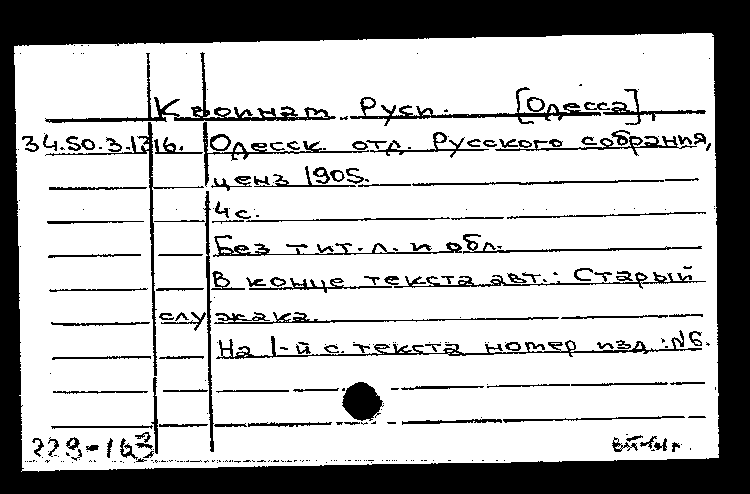 К воинам Руси. [Одесса],
34.50.3.1316. Одесск. отд. Русского собрания,
ценз 1905.
4 с.
Без тит. л. и обл.
В конце текста авт.: Старый
служака.
На 1-й с. текста номер изд.: №6.
229-163